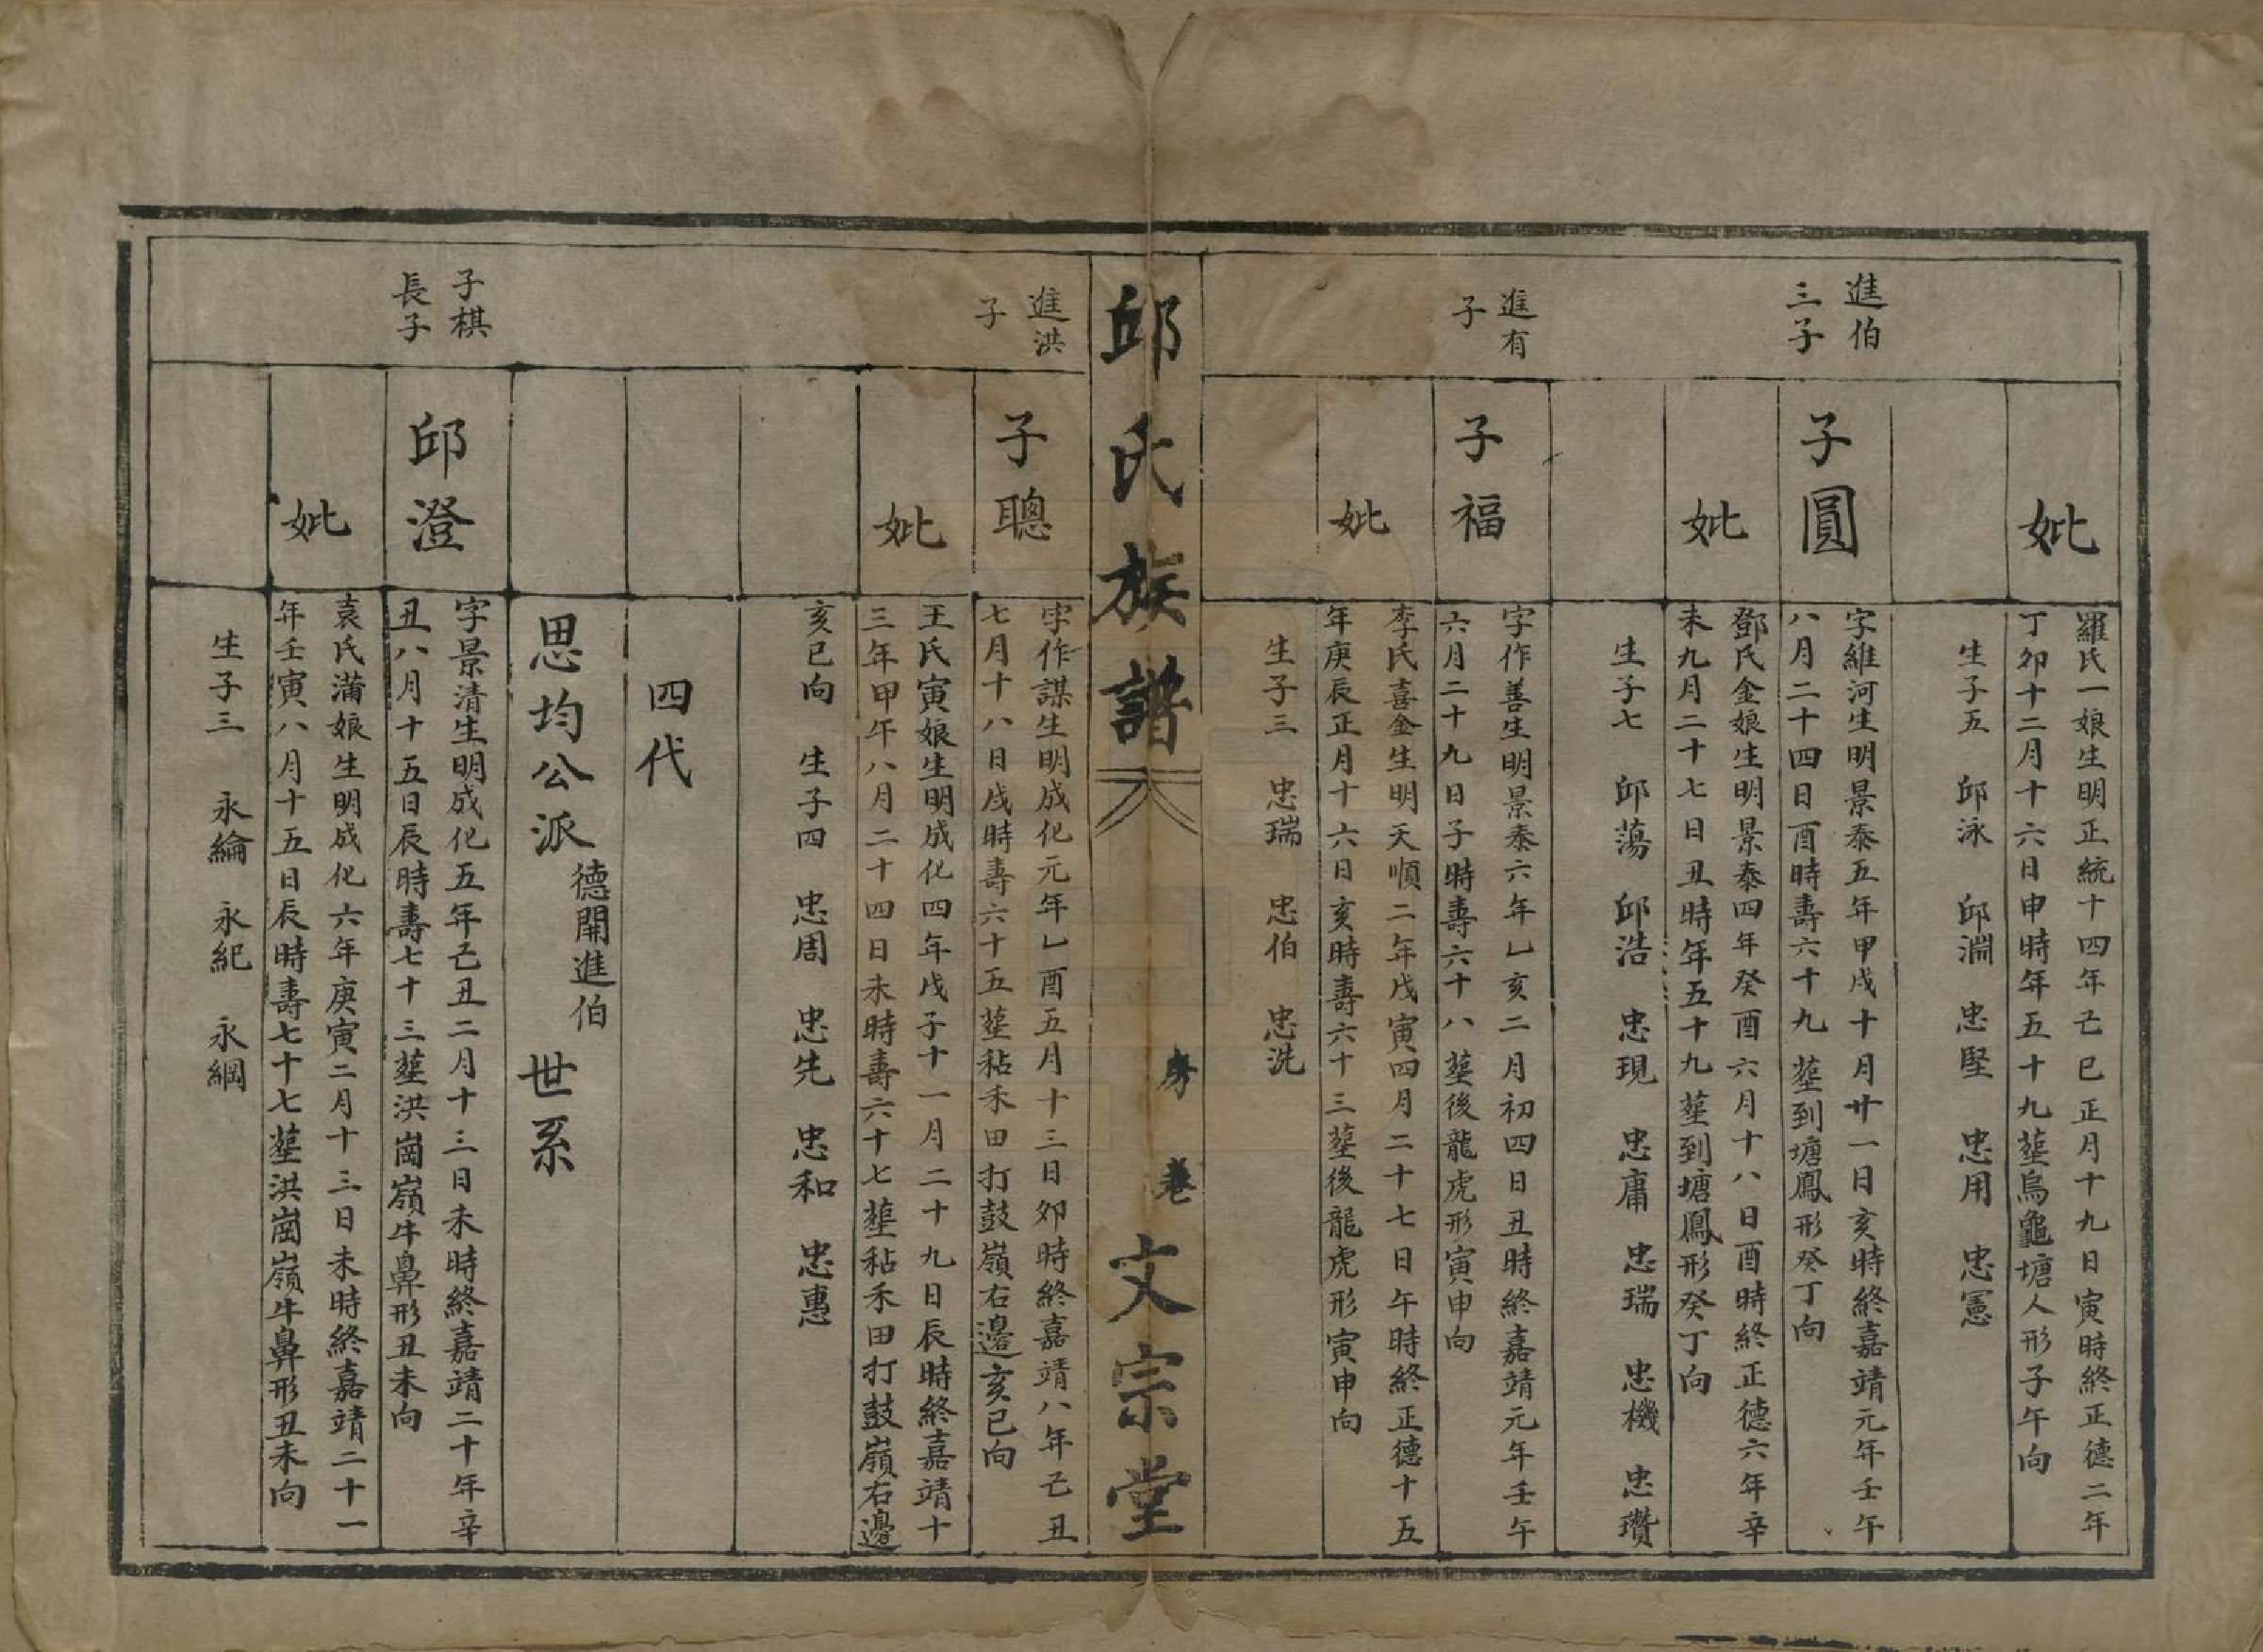 妣
羅氏一娘生明正統十四年己巳正月十九日寅時終正德二年
丁卯十二月十六日申時年五十九塟烏龜塘人形子午向
生子五 邱泳 邱淵 忠堅 忠用 忠憲
進伯
三子
子圓
字維河生明景泰五年甲戌十月廿一日亥時終嘉靖元年壬午
八月二十四日酉時壽六十九塟到塘鳳形癸丁向
妣
鄧氏金娘生明景泰四年癸酉六月十八日酉時終正德六年辛
未九月二十七日丑時年五十九塟到塘鳳形癸丁向
生子七 邱蕩 邱浩 忠現 忠庸 忠瑞 忠機 忠瓚
進有
子
子福
字作善生明景泰六年乙亥二月初四日丑時終嘉靖元年壬午
六月二十九日子時壽六十八塟後龍虎形寅申向
妣
李氏喜金生明天順二年戊寅四月二十七日午時終正德十五
年庚辰正月十六日亥時壽六十三塟後龍虎形寅申向
生子三 忠瑞 忠伯 忠洗
邱氏族譜 房 卷 文宗堂
進洪
子
子聰
字作謀生明成化元年乙酉五月十三日卯時終嘉靖八年己丑
七月十八日戌時壽六十五塟秥禾田打鼓嶺右邊亥巳向
妣
王氏寅娘生明成化四年戊子十一月二十九日辰時終嘉靖十
三年甲午八月二十四日未時壽六十七塟秥禾田打鼓嶺右邊
亥巳向 生子四 忠周 忠先 忠和 忠惠
四代
思均公派 德開進伯 世系
子棋
長子
邱澄
字景清生明成化五年己丑二月十三日未時終嘉靖二十年辛
丑八月十五日辰時壽七十三塟洪崗嶺牛鼻形丑未向
妣
袁氏蒲娘生明成化六年庚寅二月十三日未時終嘉靖二十一
年壬寅八月十五日辰時壽七十七塟洪崗嶺牛鼻形丑未向
生子三 永綸 永紀 永綱